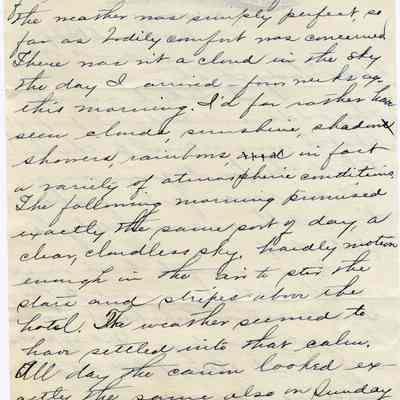 The weather was simply perfect, so
far as bodily comfort was concerned
There was n't a cloud in the sky
the day I arrived - four weeks ago
this morning. I'd far rather have
seen clouds, sunshine, shadows
showers, rainbows, in fact
a variety of atmospheric conditions.
The following morning promised
exactly the same sort of day, a
clear, cloudless sky, hardly motion
enough in the air to stir the
stars and stripes above the
hotel. The weather seemed to
have settled into that calm.
All day the cañon looked ex-
actly the same also on Sunday